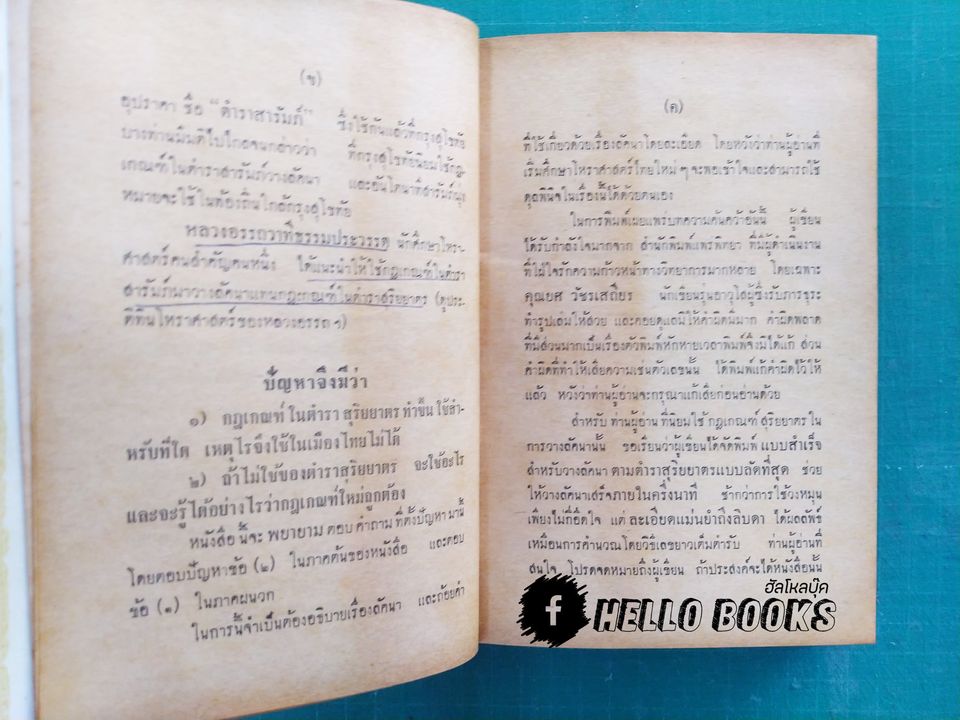 (ข)
อุปราคา ชื่อ “ตำราสารัมภ์” ซึ่งใช้กันแล้วที่กรุงสุโขทัย
บางท่านมีมติไปไกลจนกล่าวว่า ที่กรุงสุโขทัยนิยมใช้กฎ
เกณฑ์ในตำราสารัมภ์วางลัคนา และอันโตนาทีสารัมภ์มุ่ง
หมายจะใช้ในท้องถิ่นใกล้กรุงสุโขทัย
หลวงอรรถวาทีธรรมประวรรต นักศึกษาโหรา-
ศาสตร์คนสำคัญคนหนึ่ง ได้แนะนำให้ใช้กฎเกณฑ์ในตำรา
สารัมภ์มาวางลัคนาแทนกฎเกณฑ์ในตำราสุริยยาตร (ดูประ-
ติทินโหราศาสตร์ของหลวงอรรถ ฯ)
ปัญหาจึงมีว่า
๑) กฎเกณฑ์ ในตำรา สุริยยาตร ทำขึ้น ใช้สำ-
หรับที่ใด เหตุไรจึงใช้ในเมืองไทยไม่ได้
๒) ถ้าไม่ใช้ของตำราสุริยยาตร จะใช้อะไร
และจะรู้ได้อย่างไรว่ากฎเกณฑ์ใหม่ถูกต้อง
หนังสือ นี้จะ พยายาม ตอบ คำถาม ที่ตั้งปัญหา มานี้
โดยตอบปัญหาข้อ (๒) ในภาคต้นของหนังสือ และตอบ
ข้อ (๑) ในภาคผนวก
ในการนี้จำเป็นต้องอธิบายเรื่องลัคนา และถ้อยคำ
(ค)
ที่ใช้เกี่ยวด้วยเรื่องลัคนาโดยละเอียด โดยหวังว่าท่านผู้อ่านที่
เริ่มศึกษาโหราศาสตร์ไทยใหม่ ๆ จะพอเข้าใจและสามารถใช้
ดุลพินิจในเรื่องนี้ได้ด้วยตนเอง
ในการพิมพ์เผยแพร่บทความค้นคว้าอันนี้ ผู้เขียน
ได้รับกำลังใจมากจาก สำนักพิมพ์แพร่พิทยา ที่มีผู้ดำเนินงาน
ที่ใฝ่ใจรักความก้าวหน้าทางวิทยาการมากหลาย โดยเฉพาะ
คุณยศ วัชรเสถียร นักเขียนรุ่นอาวุโสผู้ซึ่งรับภารธุระ
ทำรูปเล่มให้สวย และคอยดูแลมิให้คำผิดมีมาก คำผิดพลาด
ที่มีส่วนมากเป็นเรื่องตัวพิมพ์หักหายเวลาพิมพ์จึงมิได้แก้ ส่วน
คำผิดที่ทำให้เสียความเช่นตัวเลขนั้น ได้พิมพ์แก้คำผิดไว้ให้
แล้ว หวังว่าท่านผู้อ่านจะกรุณาแก้เสียก่อนอ่านด้วย
สำหรับ ท่านผู้อ่าน ที่นิยมใช้ กฎเกณฑ์ สุริยยาตร ใน
การวางลัคนานั้น ขอเรียนว่าผู้เขียนได้จัดพิมพ์ แบบสำเร็จ
สำหรับวางลัคนา ตามตำราสุริยยาตรแบบลัดที่สุด ช่วย
ให้วางลัคนาเสร็จภายในครึ่งนาที ช้ากว่าการใช้วงหมุน
เพียงไม่กี่อึดใจ แต่ ละเอียดแม่นยำถึงลิบดา ได้ผลลัพธ์
เหมือนการคำนวณโดยวิธีเลขยาวเต็มตำรับ ท่านผู้อ่านที่
สนใจ โปรดจดหมายถึงผู้เขียน ถ้าประสงค์จะได้หนังสือนั้น
ฮัลโหลบุ๊ค
f HELLO BOOKS